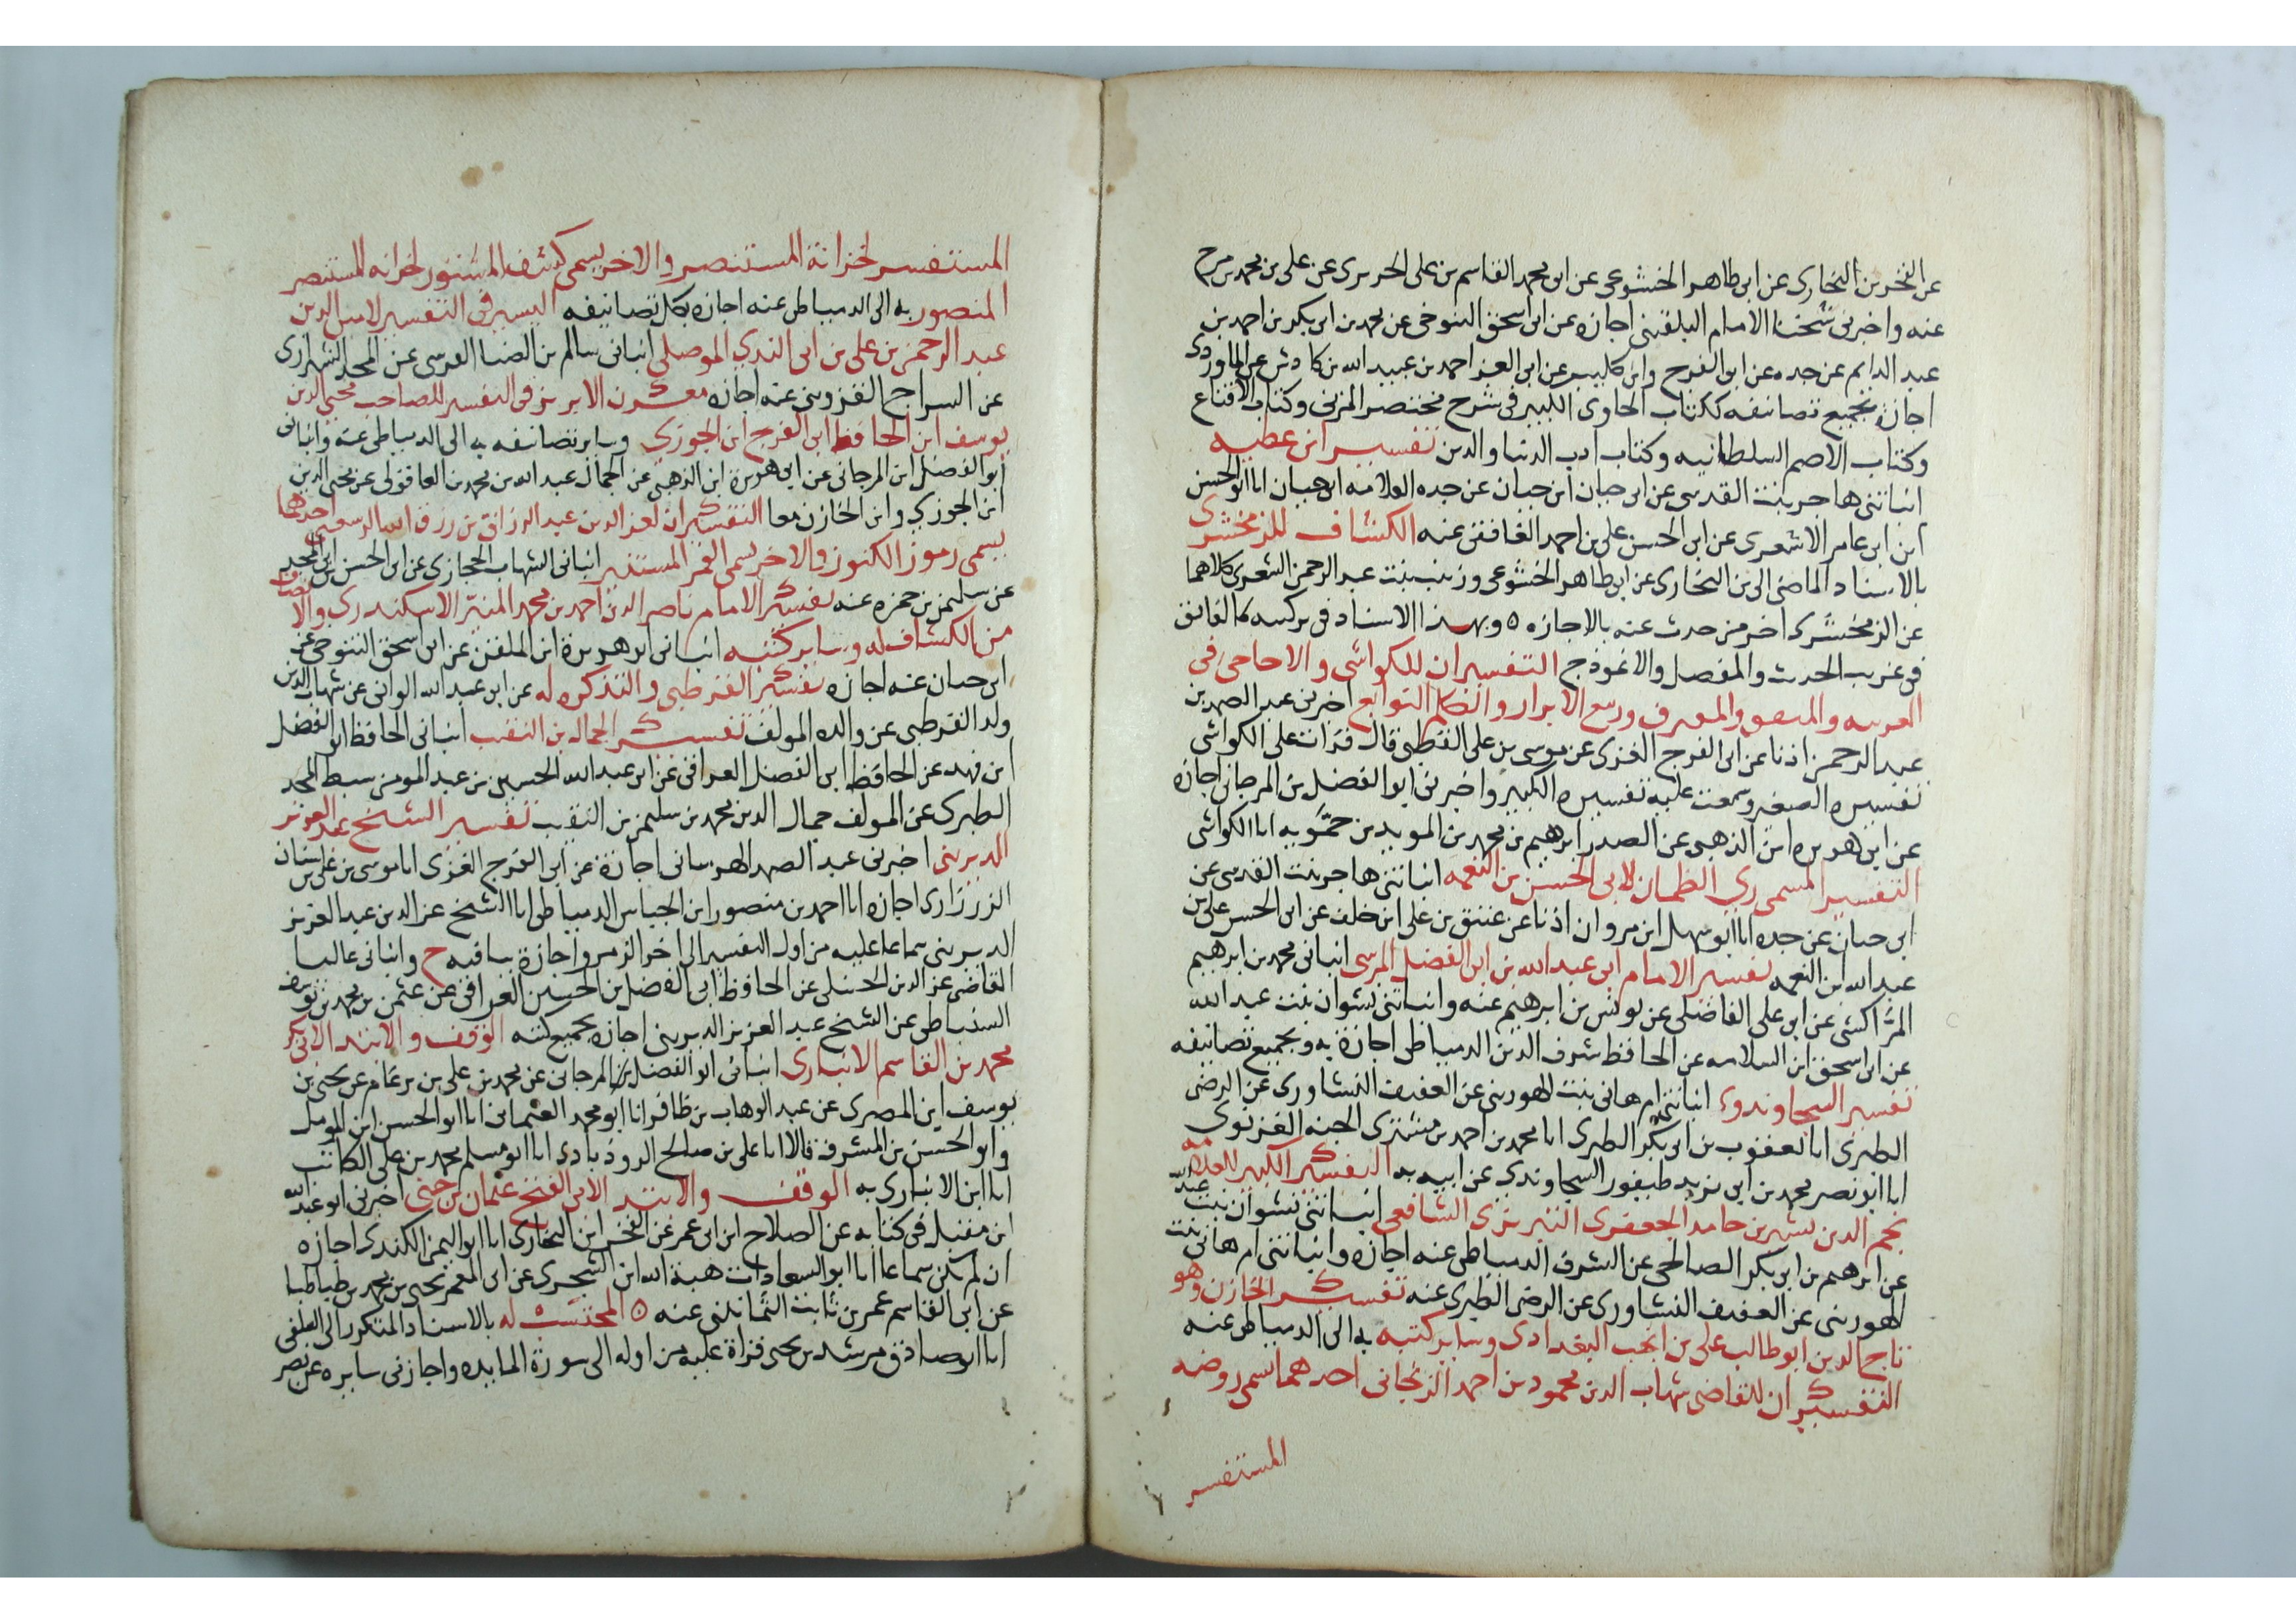 عن الفخر بن البخارى عن ابى طاهر الخشوعى عن ابى محمد القاسم بن على الحريرى عن على بن محمد بن
عنه واخبرنى شيخنا الامام البلقينى اجازه عن ابى اسحق التنوخى عن محمد بن ابى بكر بن احمد بن
عبد الدايم عن جده عن ابى الفرج وابن كليب عن ابى العز احمد بن عبيد الله بن كادش عن الماوردى
اجازه بجميع تصانيفه ككتاب الحاوى الكبير فى شرح مختصر المزنى وكتاب الاقناع
وكتاب الاحكام السلطانيه وكتاب ادب الدنيا والدين تفسير ابن عطيه
انباتنى هاجر بنت القدسى عن ابن حيان ابن حيان عن جده العلامه ابى حيان انا ابو الحسن
ابن ابى عامر الاشعرى عن ابى الحسن على بن احمد الغافقى عنه الكشاف للزمخشرى
بالاسناد الماضى الى بن البخارى عن ابى طاهر الخشوعى وزينب بنت عبد الرحمن الشعرى كلاهما
عن الزمخشرى اخر من حدث عنه بالاجازه ٥ وبهذا الاسناد كالفائق
فى غريب الحديث والمفصل والانموذج التفسيران للكواشى والاحاجى فى
وربيع الابرار والكلم النوابغ اخبرنى عبد الصمد بن
عبد الرحمن اذنا عن ابى الفرج الغزى عن موسى بن على القطبى قال قرات على الكواشى
تفسيره الصغير وسمعت عليه تفسيره الكبير واخبرنى ابو الفضل بن المرجانى اجازه
عن ابى هريره ابن الذهبى عن الصدر ابرهيم بن محمد بن المويد بن حمويه انا الكواشى
التفسير المسمى رى الظمان لابى الحسن بن النعمه انباتنى هاجر بنت القدسى عن
ابى حيان عن جده انا ابو سهل ابن مروان اذنا عن عتيق بن على ابن خلف عن ابى الحسن على بن
عبد الله ابن النعمه تفسير الامام ابى عبد الله بن ابى الفضل المرسى انبانى محمد بن ابرهيم
المراكشى عن ابى على الفاضلى عن يونس بن ابرهيم عنه وانباتنى نشوان بنت عبد الله
عن ابى اسحق ابن السلامه عن الحافظ شرف الدين الدمياطى اجازة به وبجميع تصانيفه
تفسير السجاوندى انباتنى ام هانى بنت الهورينى عن العفيف النشاورى عن الرضى
الطبرى انا يعقوب بن ابى بكر الطبرى انا محمد بن احمد بن مشترى الجبه الغزنوى
انا ابو نصر محمد بن ابى يزيد طيفور السجاوندى عن ابيه به التفسير الكبير للعلامه
نجم الدين بشير بن حامد الجعفرى التبريزى الشافعى انباتنى نشوان بنت عبد الله
عن ابرهيم بن ابى بكر الصالحى عن الشرف الدمياطى عنه اجازه وانباتنى ام هانى بنت
الهورينى عن العفيف النشاورى عن الرضى الطبرى عنه تفسير الخازن وهو
تاج الدين ابو طالب على بن انجب البغدادى وساير كتبه به الى الدمياطى عنه
التفسيران للقاضى شهاب الدين محمود بن احمد الزنجانى احدهما يسمى روضه
المستفسر
المستفسر لخزانة المستنصر والاخر يسمى كشف المنثور لخزانه المستنصر
المنصور به الى الدمياطى عنه اجازه بكل تصانيفه اليسير فى التفسير لامين الدين
عبد الرحمن بن على بن ابى الندى الموصلى انبانى سالم بن الضيا القرشى عن المجد الشيرازى
عن السراج القزوينى عنه اجازه معدن الابريز فى التفسير للصاحب محيى الدين
يوسف ابن الحافظ ابى الفرج ابن الجوزى وساير تصانيفه به الى الدمياطى عنه وانبانى
ابو الفضل ابن المرجانى عن ابى هريرة ابن الذهبى عن الجمال عبد الله بن محمد بن العاقولى عن محيى الدين
ابن الجوزى وابن الخازن معا التفسيران لعز الدين عبد الرازق بن رزق الله الرسعنى احدهما
يسمى رموز الكنوز والاخر يسمى القمر المستنير انبانى الشهاب الحجازى عن ابى الحسن بن ابى المجد
عن سليمن بن حمزه عنه تفسير الامام ناصر الدين احمد بن محمد المنير الاسكندرى والانتصاف
من الكشاف له وساير كتبه انبانى ابو هريرة ابن الملقن عن ابى اسحق التنوخى عن
ابى حيان عنه اجازه تفسير القرطبى والتذكره له عن ابى عبد الله الوانى عن شهاب الدين
ولد القرطبى عن والده المولف تفسير الجمال بن النقيب انبانى الحافظ ابو الفضل
ابن فهد عن الحافظ ابى الفضل العراقى عن ابى عبد الله الحسين بن عبد المومن سبط المجد
الطبرى عن المولف جمال الدين محمد بن سليمن بن النقيب تفسير الشيخ عبد العزيز
الديرينى اخبرنى عبد الصمد الهرسانى اجازة عن ابى الفرج الغزى انا موسى بن على بن
الزرزارى اجازه انا احمد بن منصور ابن الجباس الدمياطى انا الشيخ عز الدين عبد العزيز
الديرينى سماعا عليه من اول التفسير الى اخر الزمر واجازة بباقيه ح وانبانى عاليا
القاضى عز الدين الحنبلى عن الحافظ ابى الفضل بن الحسين العراقى عن عثمن بن محمد بن
السنباطى عن الشيخ عبد العزيز الديرينى اجازه بجميع كتبه الوقف والابتدا لابى بكر
محمد بن القاسم الانبارى انبانى ابو الفضل بن المرجانى عن محمد بن على بن ضرغام عن يحيى بن
يوسف ابن المصرى عن عبد الوهاب بن ظافر انا ابو محمد العثمانى انا ابو الحسن ابن الموصل
وابو الحسن بن المشرف قالا انا على بن صالح الروذبادى انا ابو مسلم محمد بن على الكاتب
انا ابن الانبارى به الوقف والابتدا لابى الفتح عثمان بن جنى اخبرنى ابو عبد الله
ابن مقبل فى كتابه عن الصلاح ابن ابى عمر عن الفخر ابن البخارى انا ابو اليمن الكندى اجازه
ان لم يكن سماعا انا ابو السعادات هبة الله ابن الشجرى عن ابى المعمر يحيى بن محمد بن طباطبا
عن ابى القاسم عمر بن ثابت الثمانينى عنه ٥ المحتسب له بالاسناد المتكرر الى السلفى
انا ابو صادق مرشد بن يحيى قراة عليه من اوله الى سورة المايده واجازنى سايره عن نصر